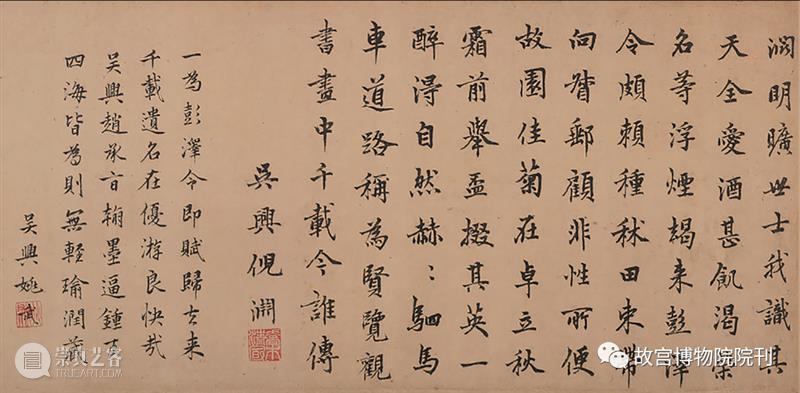 淵明曠世士我識其
天全愛酒甚飢渴榮
名等浮煙朅来彭澤
令頗賴種秫田束帶
向督郵顧非性所便
故園佳菊在卓立秋
霜前舉盃掇其英一
醉得自然赫〻駟馬
車道路稱為賢覽觀
書畫中千載今誰傳
吳興倪淵
一為彭澤令即賦歸去来
千載遺名在優游良快哉
吳興趙承旨翰墨逼鍾王
四海皆為則無輕瑜潤
吳興姚
故宫博物院院刊